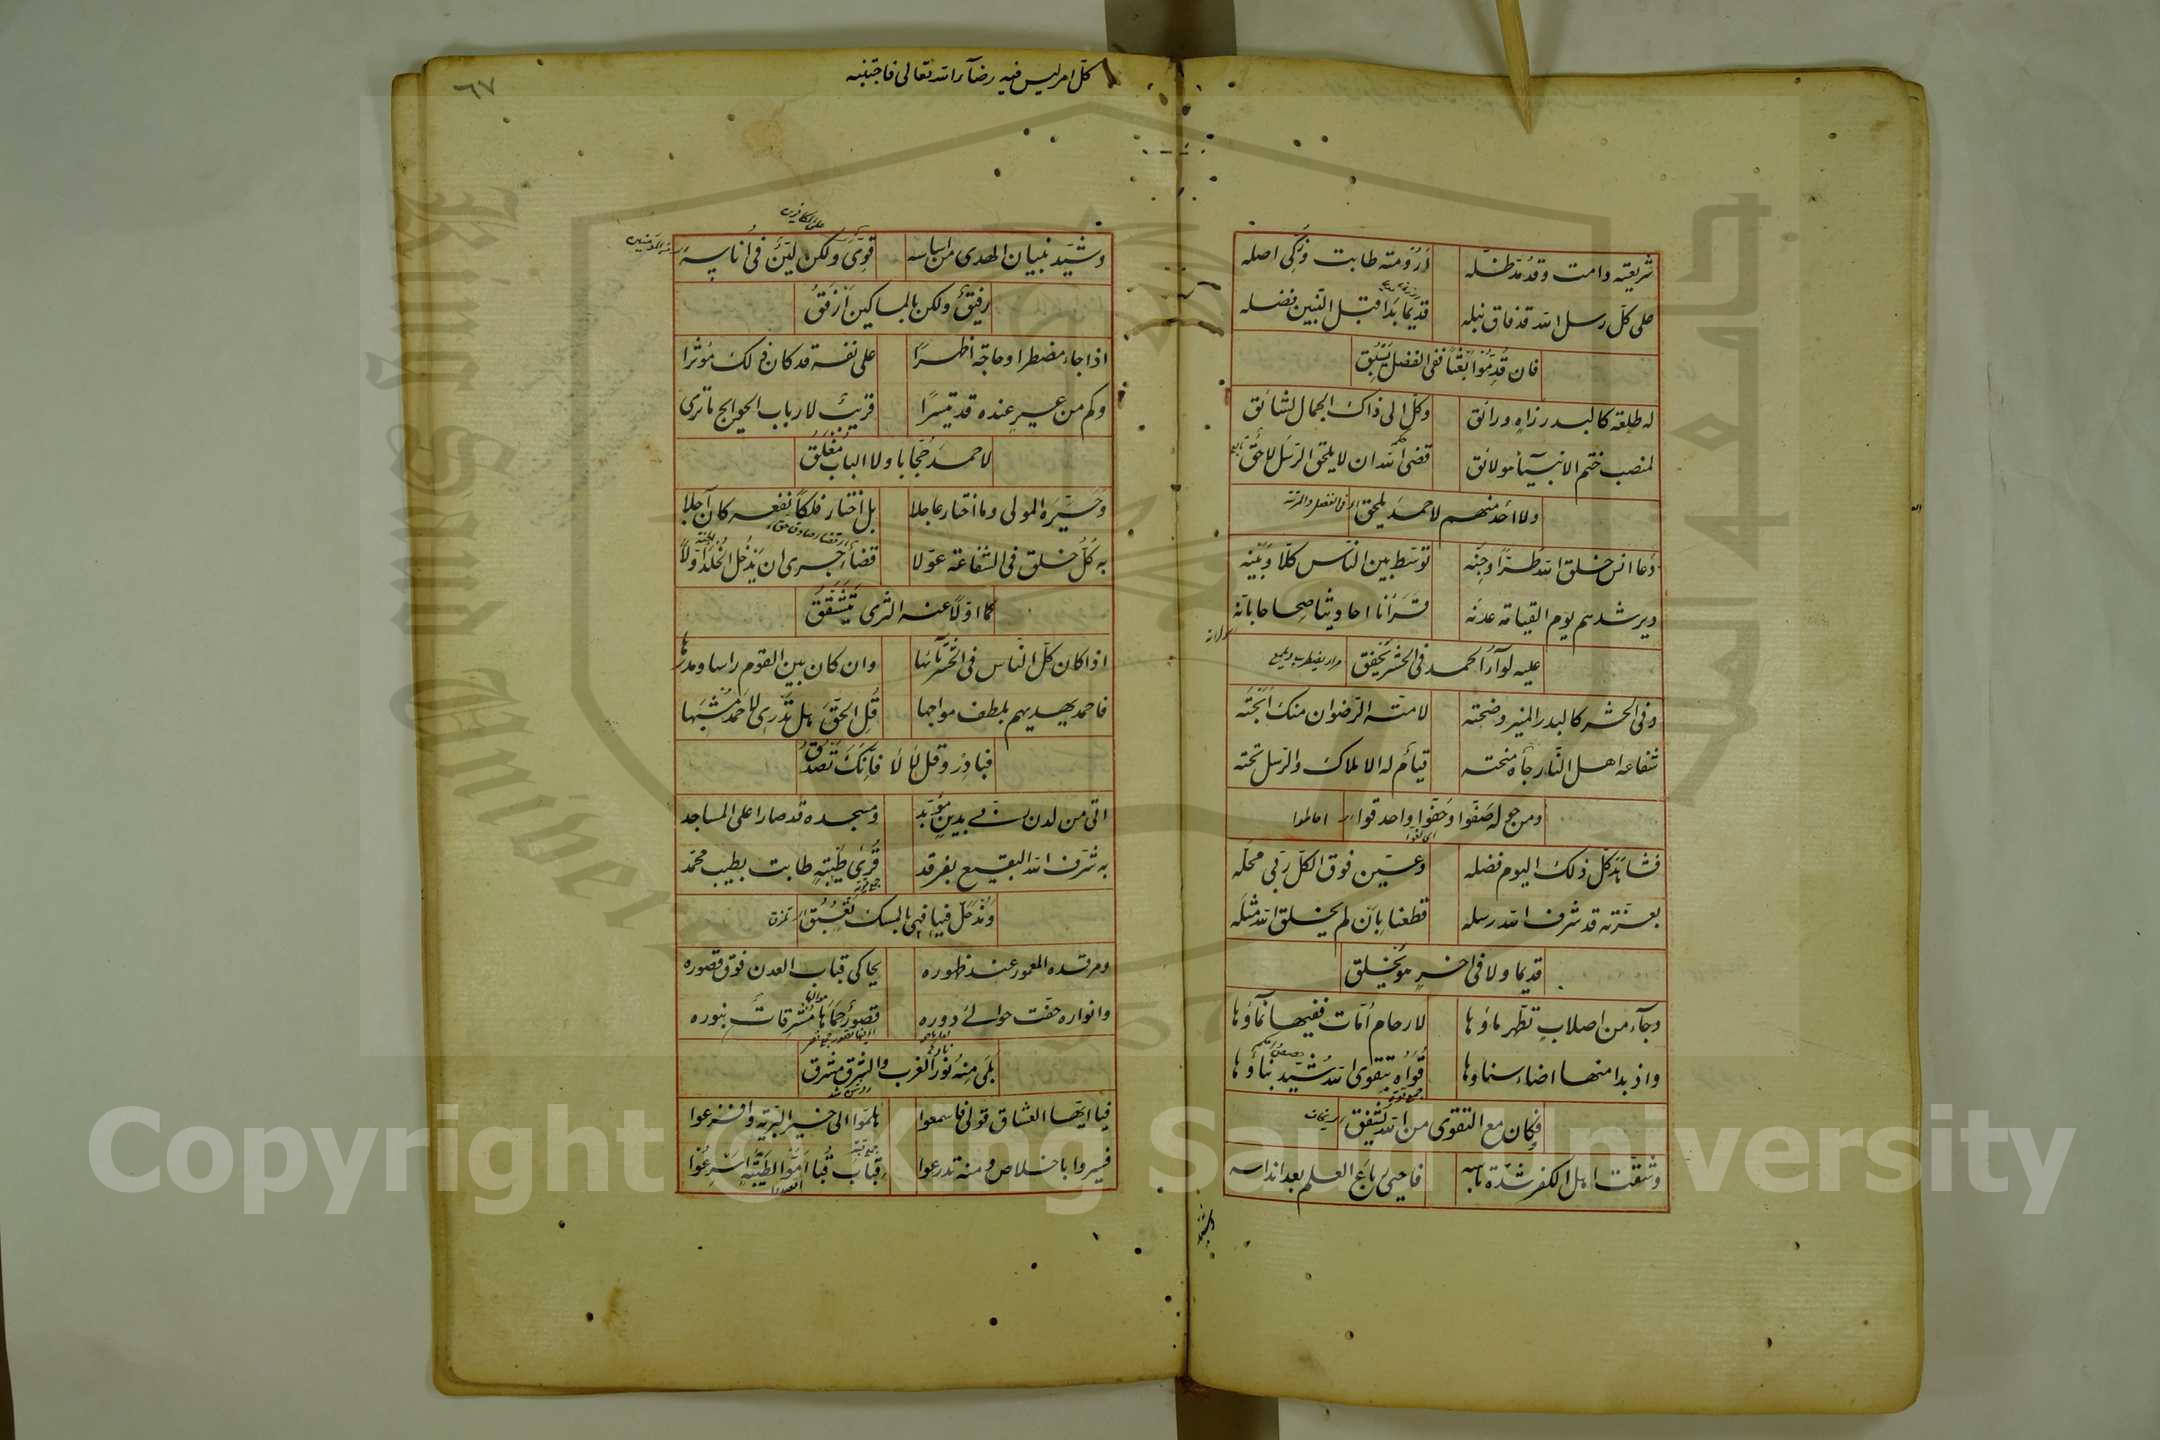 شريعته دامت وقد مد ظله ارومته طابت وزكى اصله
على كل رسل الله قد فاق نبله قديما بدا قبل النبيين فضله
فان قدموا بعثا ففي الفضل يسبق
له طلعة كالبدر زاه ورائق وكل الى ذاك الجمال لشائق
لمنصب ختم الانبياء مولائق قضى الله ان لا يلحق الرسل لاحق
ولا احد منهم لاحمد يلحق في الفضل والمرتبة
دعا انس خلق الله طرا وجنه توسط بين الناس كلا وبينه
ديرشدهم يوم القيامة عدنه قرأنا احاديثا صحاحا بانه
عليه لواء الحمد في الحشر يخفق
وفي الحشر كالبدر المنير وضحته لامته الرضوان منك ابحته
شفاعة اهل النار جاه منحته قيام له الاملاك والرسل تحته
ومن حوله صفوا وحفوا واحدقوا احاطوا
فشاهد كل ذلك اليوم فضله وعين فوق الكل ربي محله
بعزته قد شرف الله رسله قطعنا بان لم يخلق الله مثله
قديما ولا في اخر هو يخلق
وجاء من اصلاب تطهر ماؤها لارحام امات ففيها نماؤها
واذ بدا منها اضاء سماؤها قواه بتقوى الله شيد بناؤها
فكان مع التقوى من الله يشفق
وشقت اهل الكفر شدة باسه فاحيى باع العلم بعد اندراسه
كل امر ليس فيه رضاء الله تعالى فاجتنبه
٦٧
وشيد بنيان الهدى من اساسه قوي ولكن لين في اناسه
على الكافرين
رفيق ولكن بالمساكين ارفق
اذا جاء مضطرا وحاجة اظهرا على نفسه قد كان في لك مؤثرا
وكم من عسير عنده قد تيسرا قريب لارباب الحوائج ما ترى
لاحمد حجابا ولا الباب مغلق
وخيره المولى وما اختار عاجلا بل اختار فلكا نفعه كان آجلا
به كل خلق في الشفاعة عولا قضاء جرى ان يدخل الخلد اولا
كما اولا عنه الثرى يتشقق
اذا كان كل الناس في الحشر تائها وان كان بين القوم راسا ومدرها
فاحمد يهديهم بلطف مواجها قل الحق هل تدري لاحمد مشبها
فبادر وقل لا لا فانك تصدق
اتى من لدن ربي بدين مؤبد ومسجده قد صار اعلى المساجد
به شرف الله البقيع بفرقد قرى طيبة طابت بطيب محمد
ومرقده المعمور عند ظهوره يحاكي قباب العدن فوق قصوره
وانواره حفت حوالي دوره قصور حماها مشرقات بنوره
بلى منه نور الغرب والشرق مشرق
فيا ايها العشاق قولي فاسمعوا هلموا الى خير البرية وافزعوا
فسيروا باخلاص ومنه تدرعوا قباب قبا اموا لطيبة اسرعوا
Copyright © King Saud University
King Saud University
1957